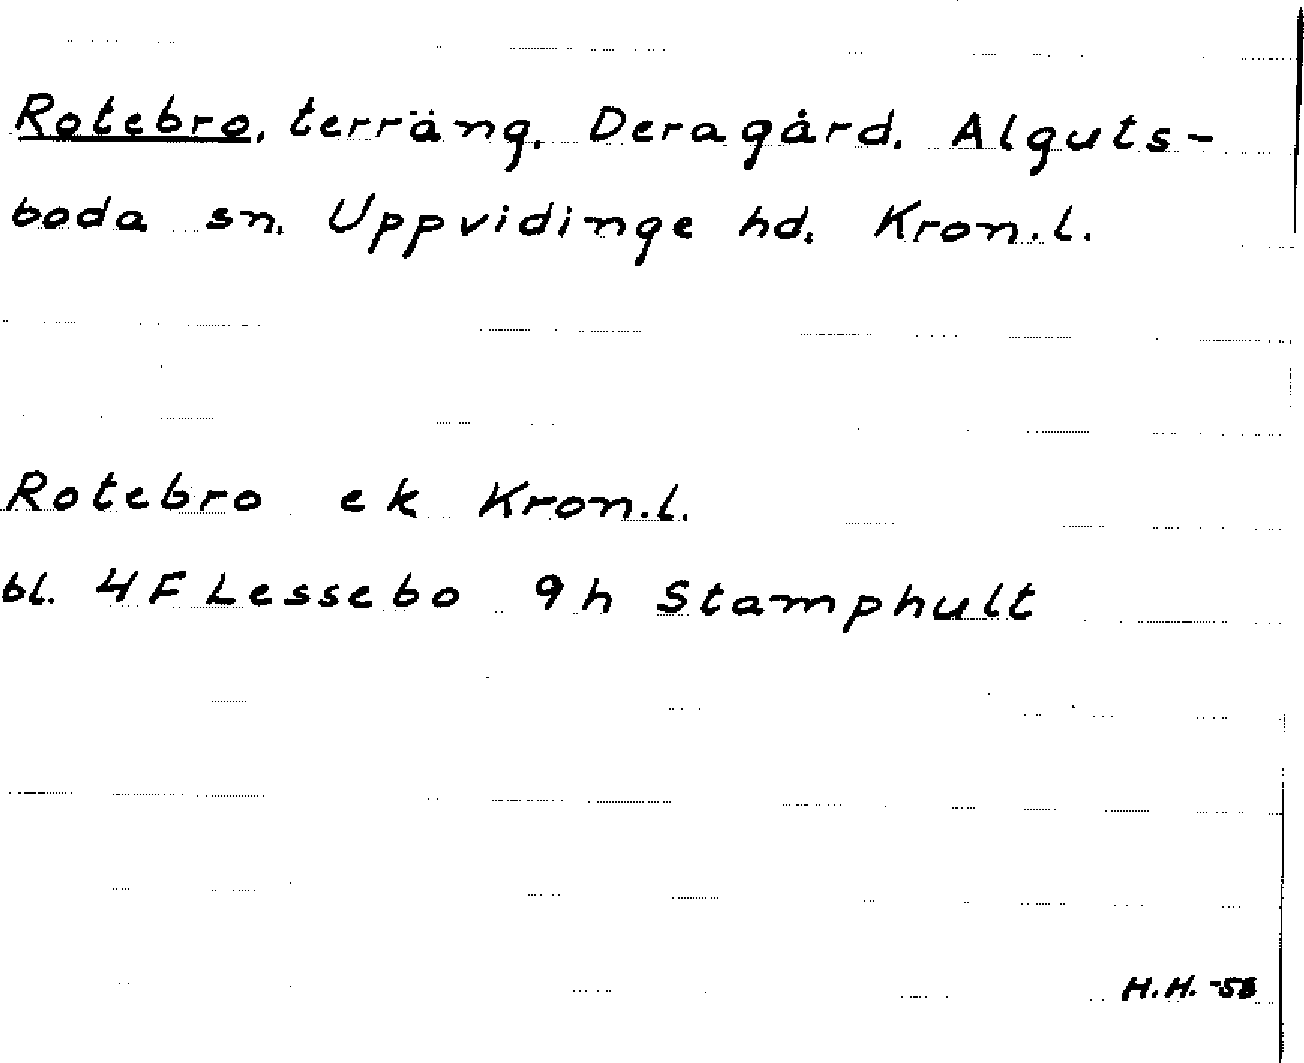 Rotebro, terräng. Deragård. Alguts-
boda sn. Uppvidinge hd. Kron.l.
Rotebro ek Kron.l.
bl. 4F Lessebo 9h Stamphult
H.H.